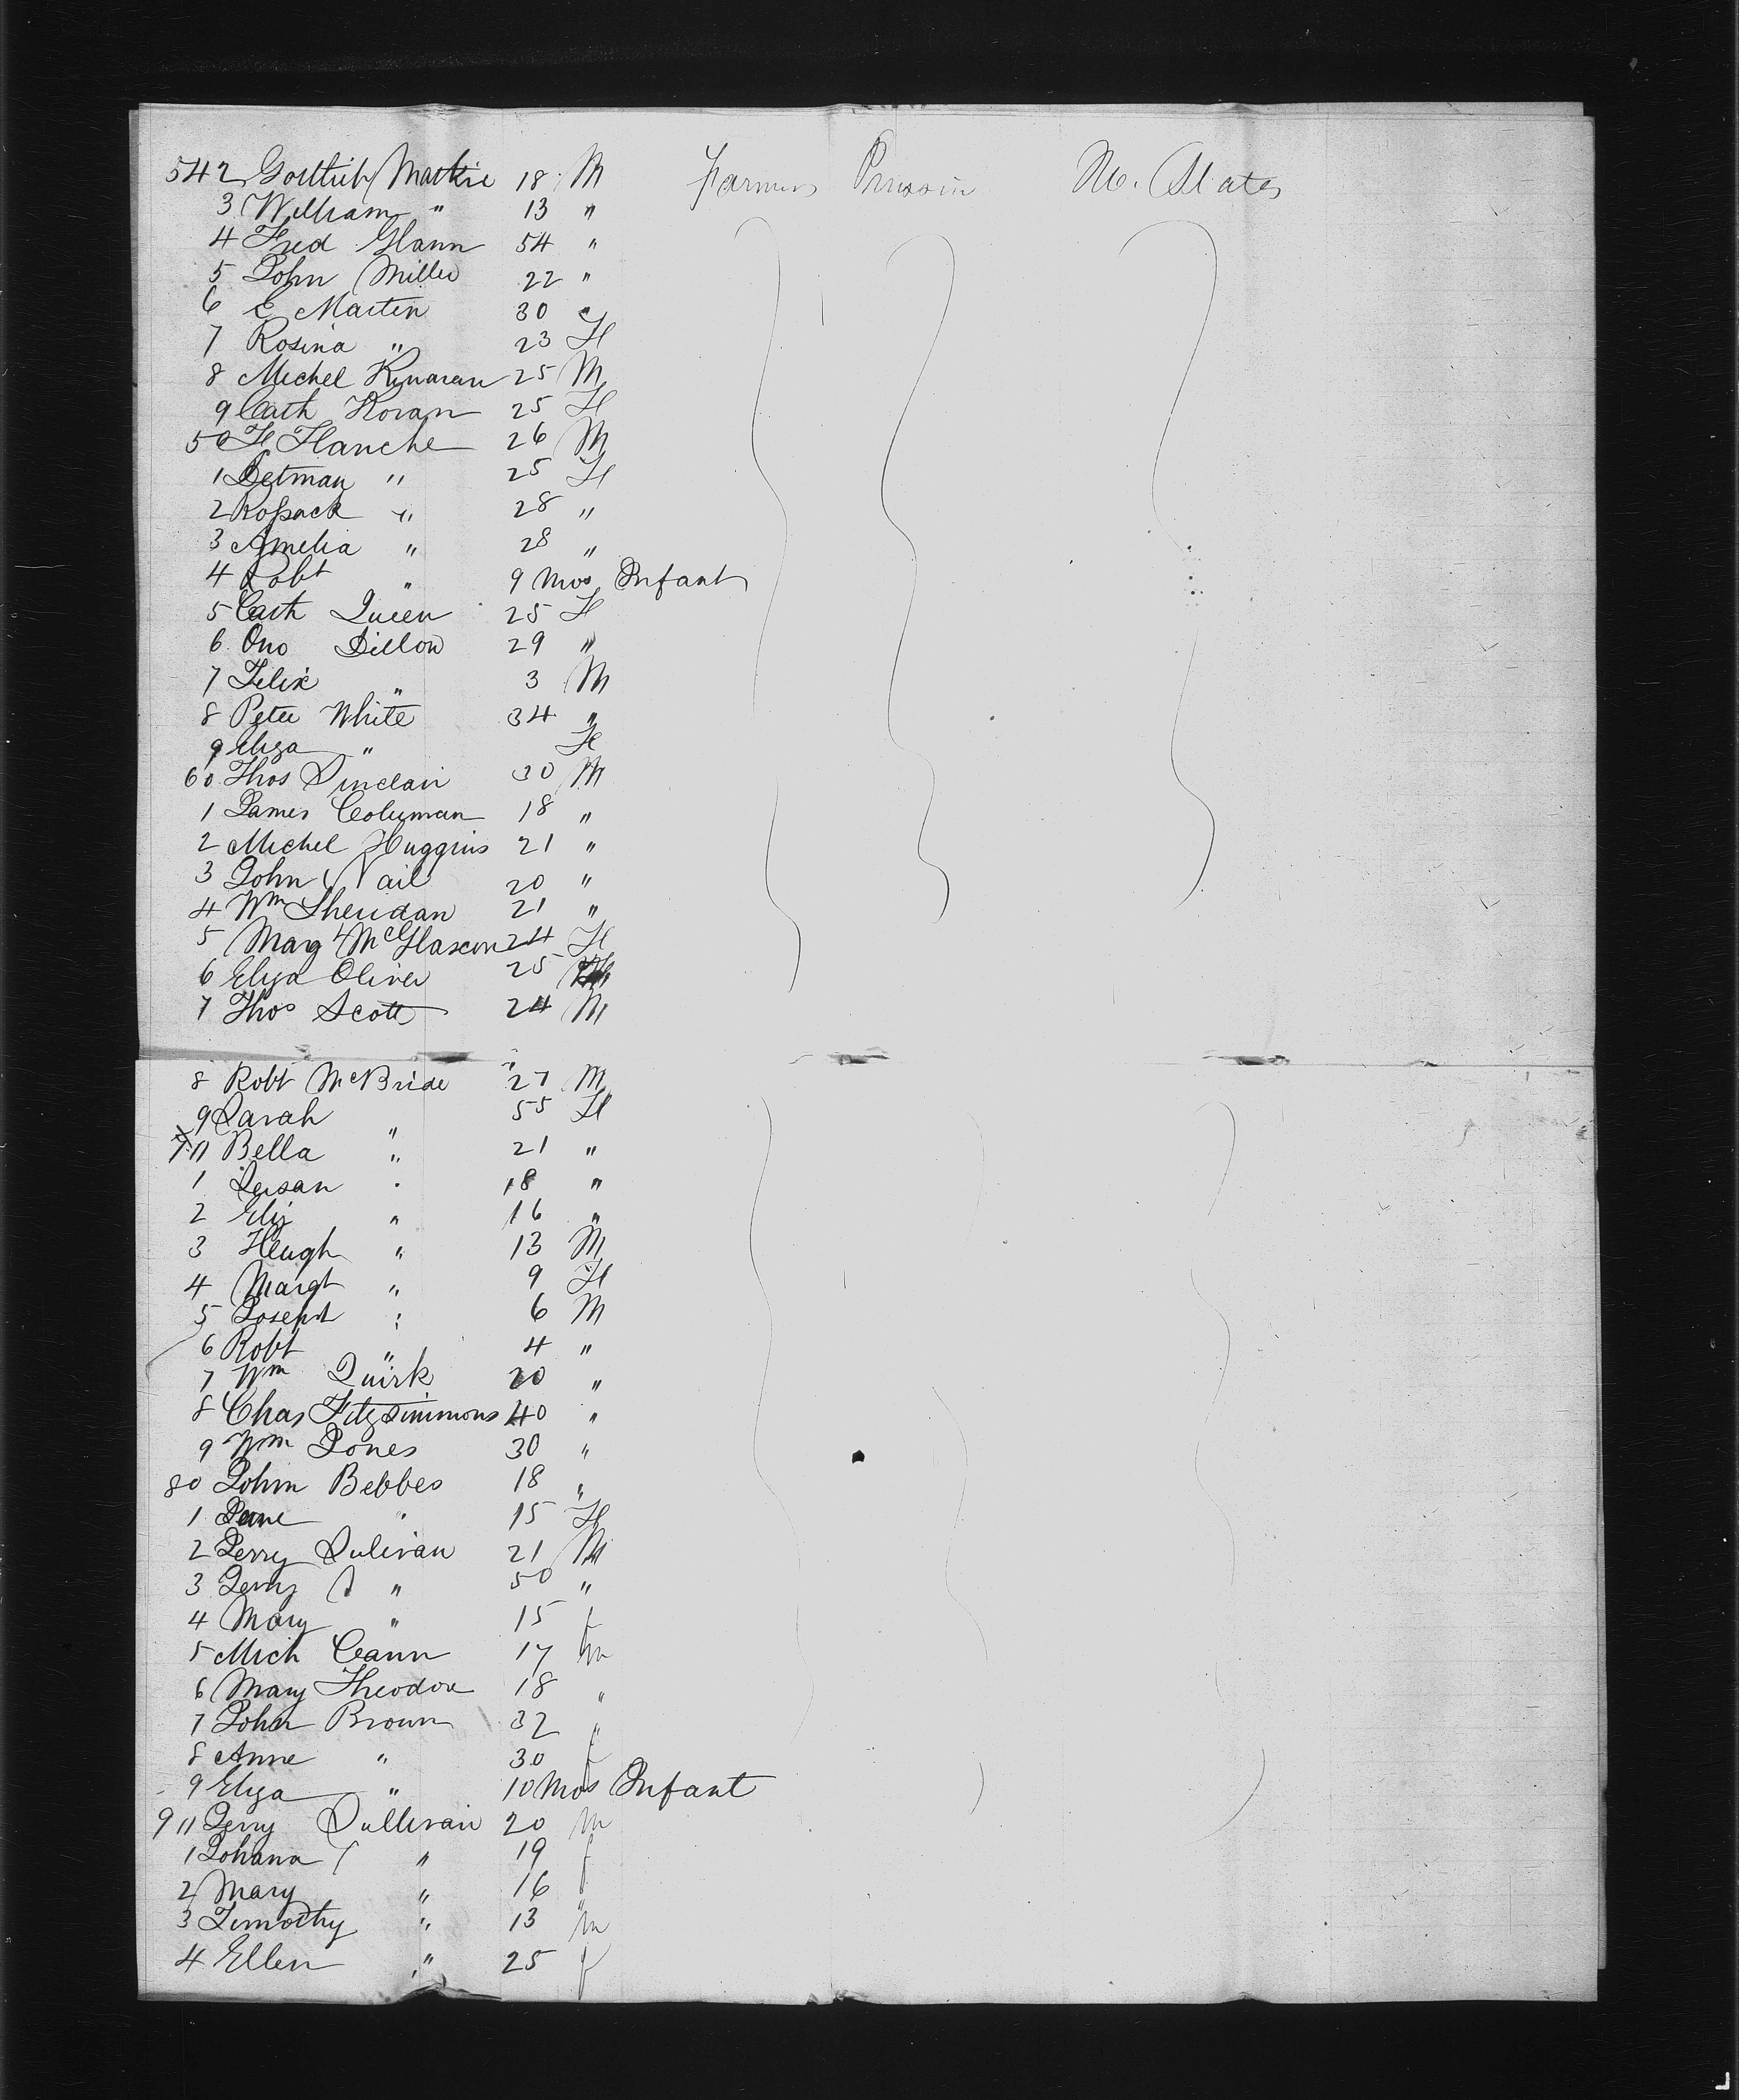 542 Gottlieb Matkie 18 M Farmers Prussia U. States
3 William " 13 "
4 Fred Glann 54 "
5 John Miller 22 "
6 E Martin 30 "
7 Rosina " 23 F
8 Michel Kinaran 25 M
9 Cath Horan 25 F
50 F Flanche 26 M
1 Detman " 25 F
2 Rossack " 28 "
3 Amelia " 28 "
4 Robt " 9 Mos Infant
5 Cath Queen 25 F
6 Ono Dillon 29 "
7 Felix " 3 M
8 Peter White 34 "
9 Eliza " F
60 Thos Sinclair 30 M
1 James Columan 18 "
2 Michel Huggins 21 "
3 John Nail 20 "
4 Wm Sheridan 21 "
5 Marg McGlaxon 24 F
6 Eliza Oliver 25
7 Thos Scott 24 M
8 Robt McBride 27 M
9 Sarah " 55 F
70 Bella " 21 "
1 Susan " 18 "
2 Eliz " 16 "
3 Heugh " 13 M
4 Margt " 9 F
5 Joseph " 6 M
6 Robt " 4 "
7 Wm Quirk 20 "
8 Chas Fitzsimmons 40 "
9 Wm Jones 30 "
80 John Bebbes 18 "
1 Jane " 15 F
2 Jerry Sulivan 21 M
3 Jerry S " 50 "
4 Mary " 15 f
5 Mich Cann 17 m
6 Mary Theodore 18 "
7 John Brown 32 "
8 Anne " 30 f
9 Eliza " 10 Mos Infant
90 Jerry Sullivan 20 m
1 Johana " 19 f
2 Mary " 16 "
3 Timothy " 13 m
4 Ellen " 25 f